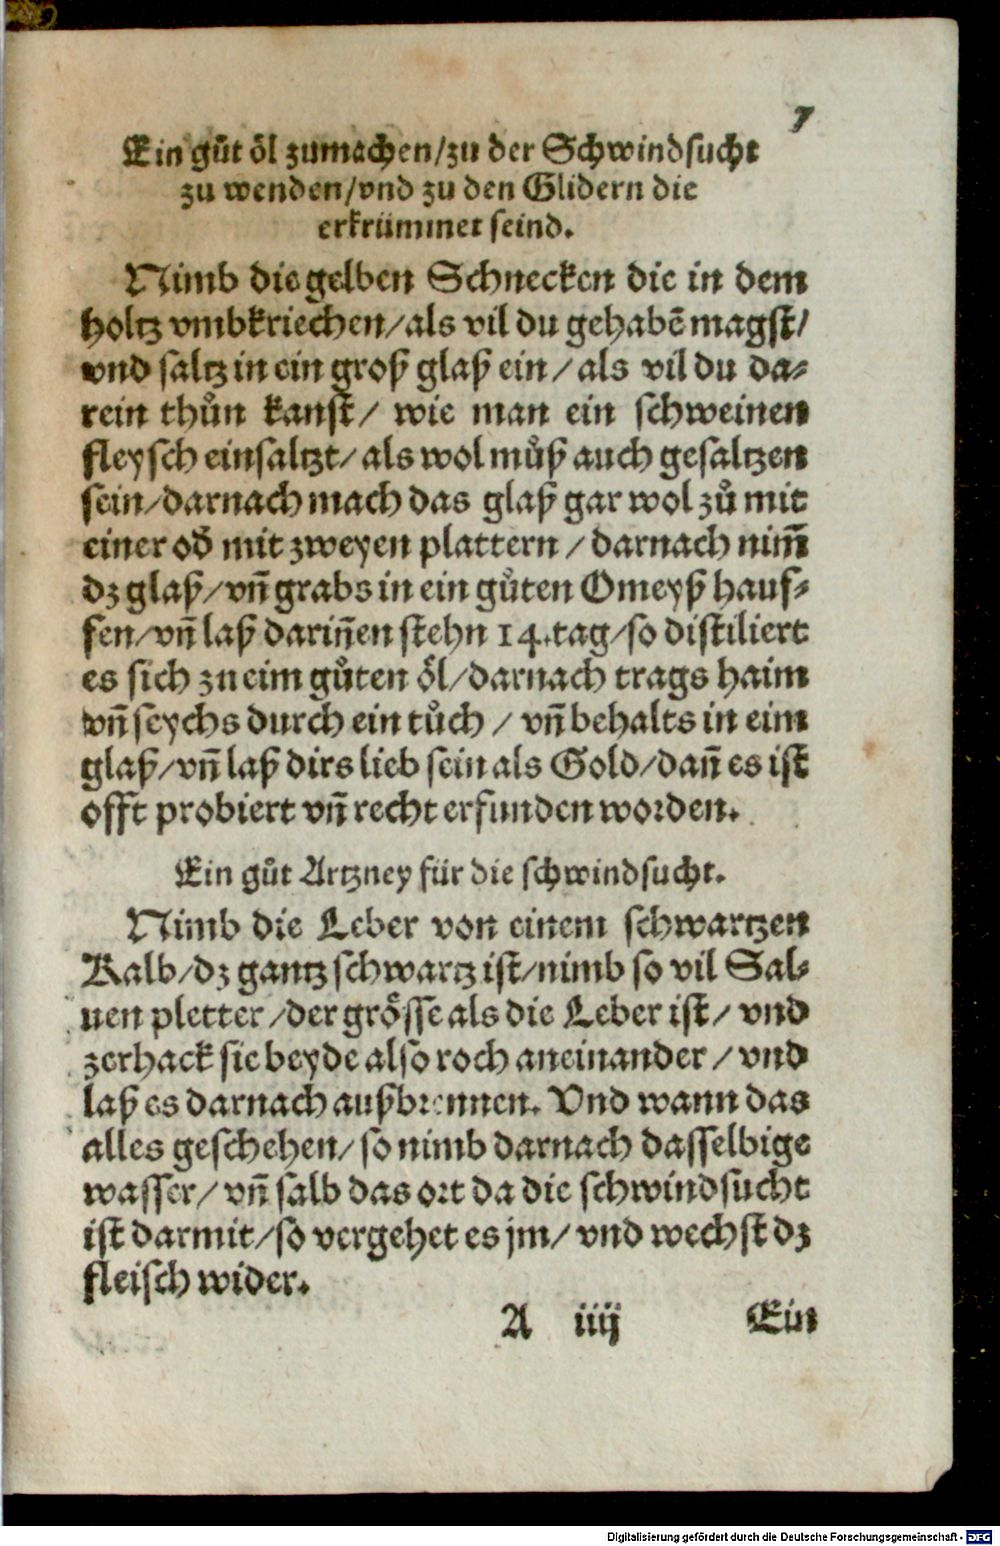 7
Ein gůt öl zumachen/zu der Schwindsucht
zu wenden/vnd zu den Glidern die
erkrümmet seind.
Nimb die gelben Schnecken die in dem
holtz vmbkriechen/als vil du gehabē magst/
vnd saltz in ein groß glaß ein/als vil du da-
rein thůn kanst/ wie man ein schweinen
fleysch einsaltzt/als wol můß auch gesaltzen
sein/darnach mach das glaß gar wol zů mit
einer od̄ mit zweyen plattern/darnach nim̄
dz glaß/vn̄ grabs in ein gůten Omeyß hauf-
fen/vn̄ laß darin̄en stehn 14.tag/so distiliert
es sich zu eim gůten öl/darnach trags haim
vn̄ seychs durch ein tůch / vn̄ behalts in eim
glaß/vn̄ laß dirs lieb sein als Gold/dan̄ es ist
offt probiert vn̄ recht erfunden worden.
Ein gůt Artzney für die schwindsucht.
Nimb die Leber von einem schwartzen
Kalb/dz gantz schwartz ist/nimb so vil Sal-
uen pletter/der grösse als die Leber ist/ vnd
zerhack sie beyde also roch aneinander/vnd
laß es darnach außbrennen. Vnd wann das
alles geschehen/so nimb darnach dasselbige
wasser/vn̄ salb das ort da die schwindsucht
ist darmit/so vergehet es jm/ vnd wechst dz
fleisch wider.
A iiij Ein
Digitalisierung gefördert durch die Deutsche Forschungsgemeinschaft - DFG